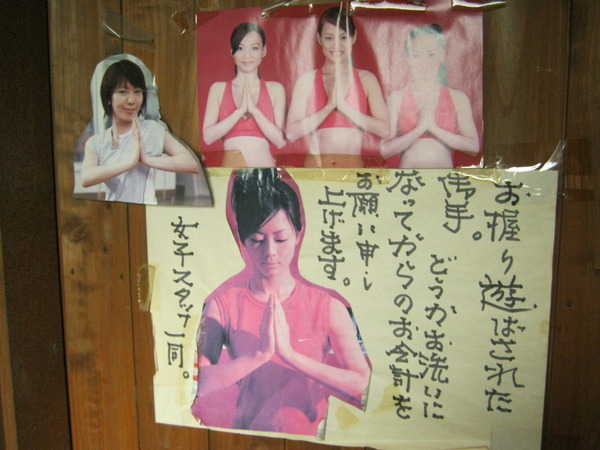 お握り遊ばされた
御手。
どうかお洗いに
なってからのお会計を
お願い申し
上げます。
女子スタッフ一同。